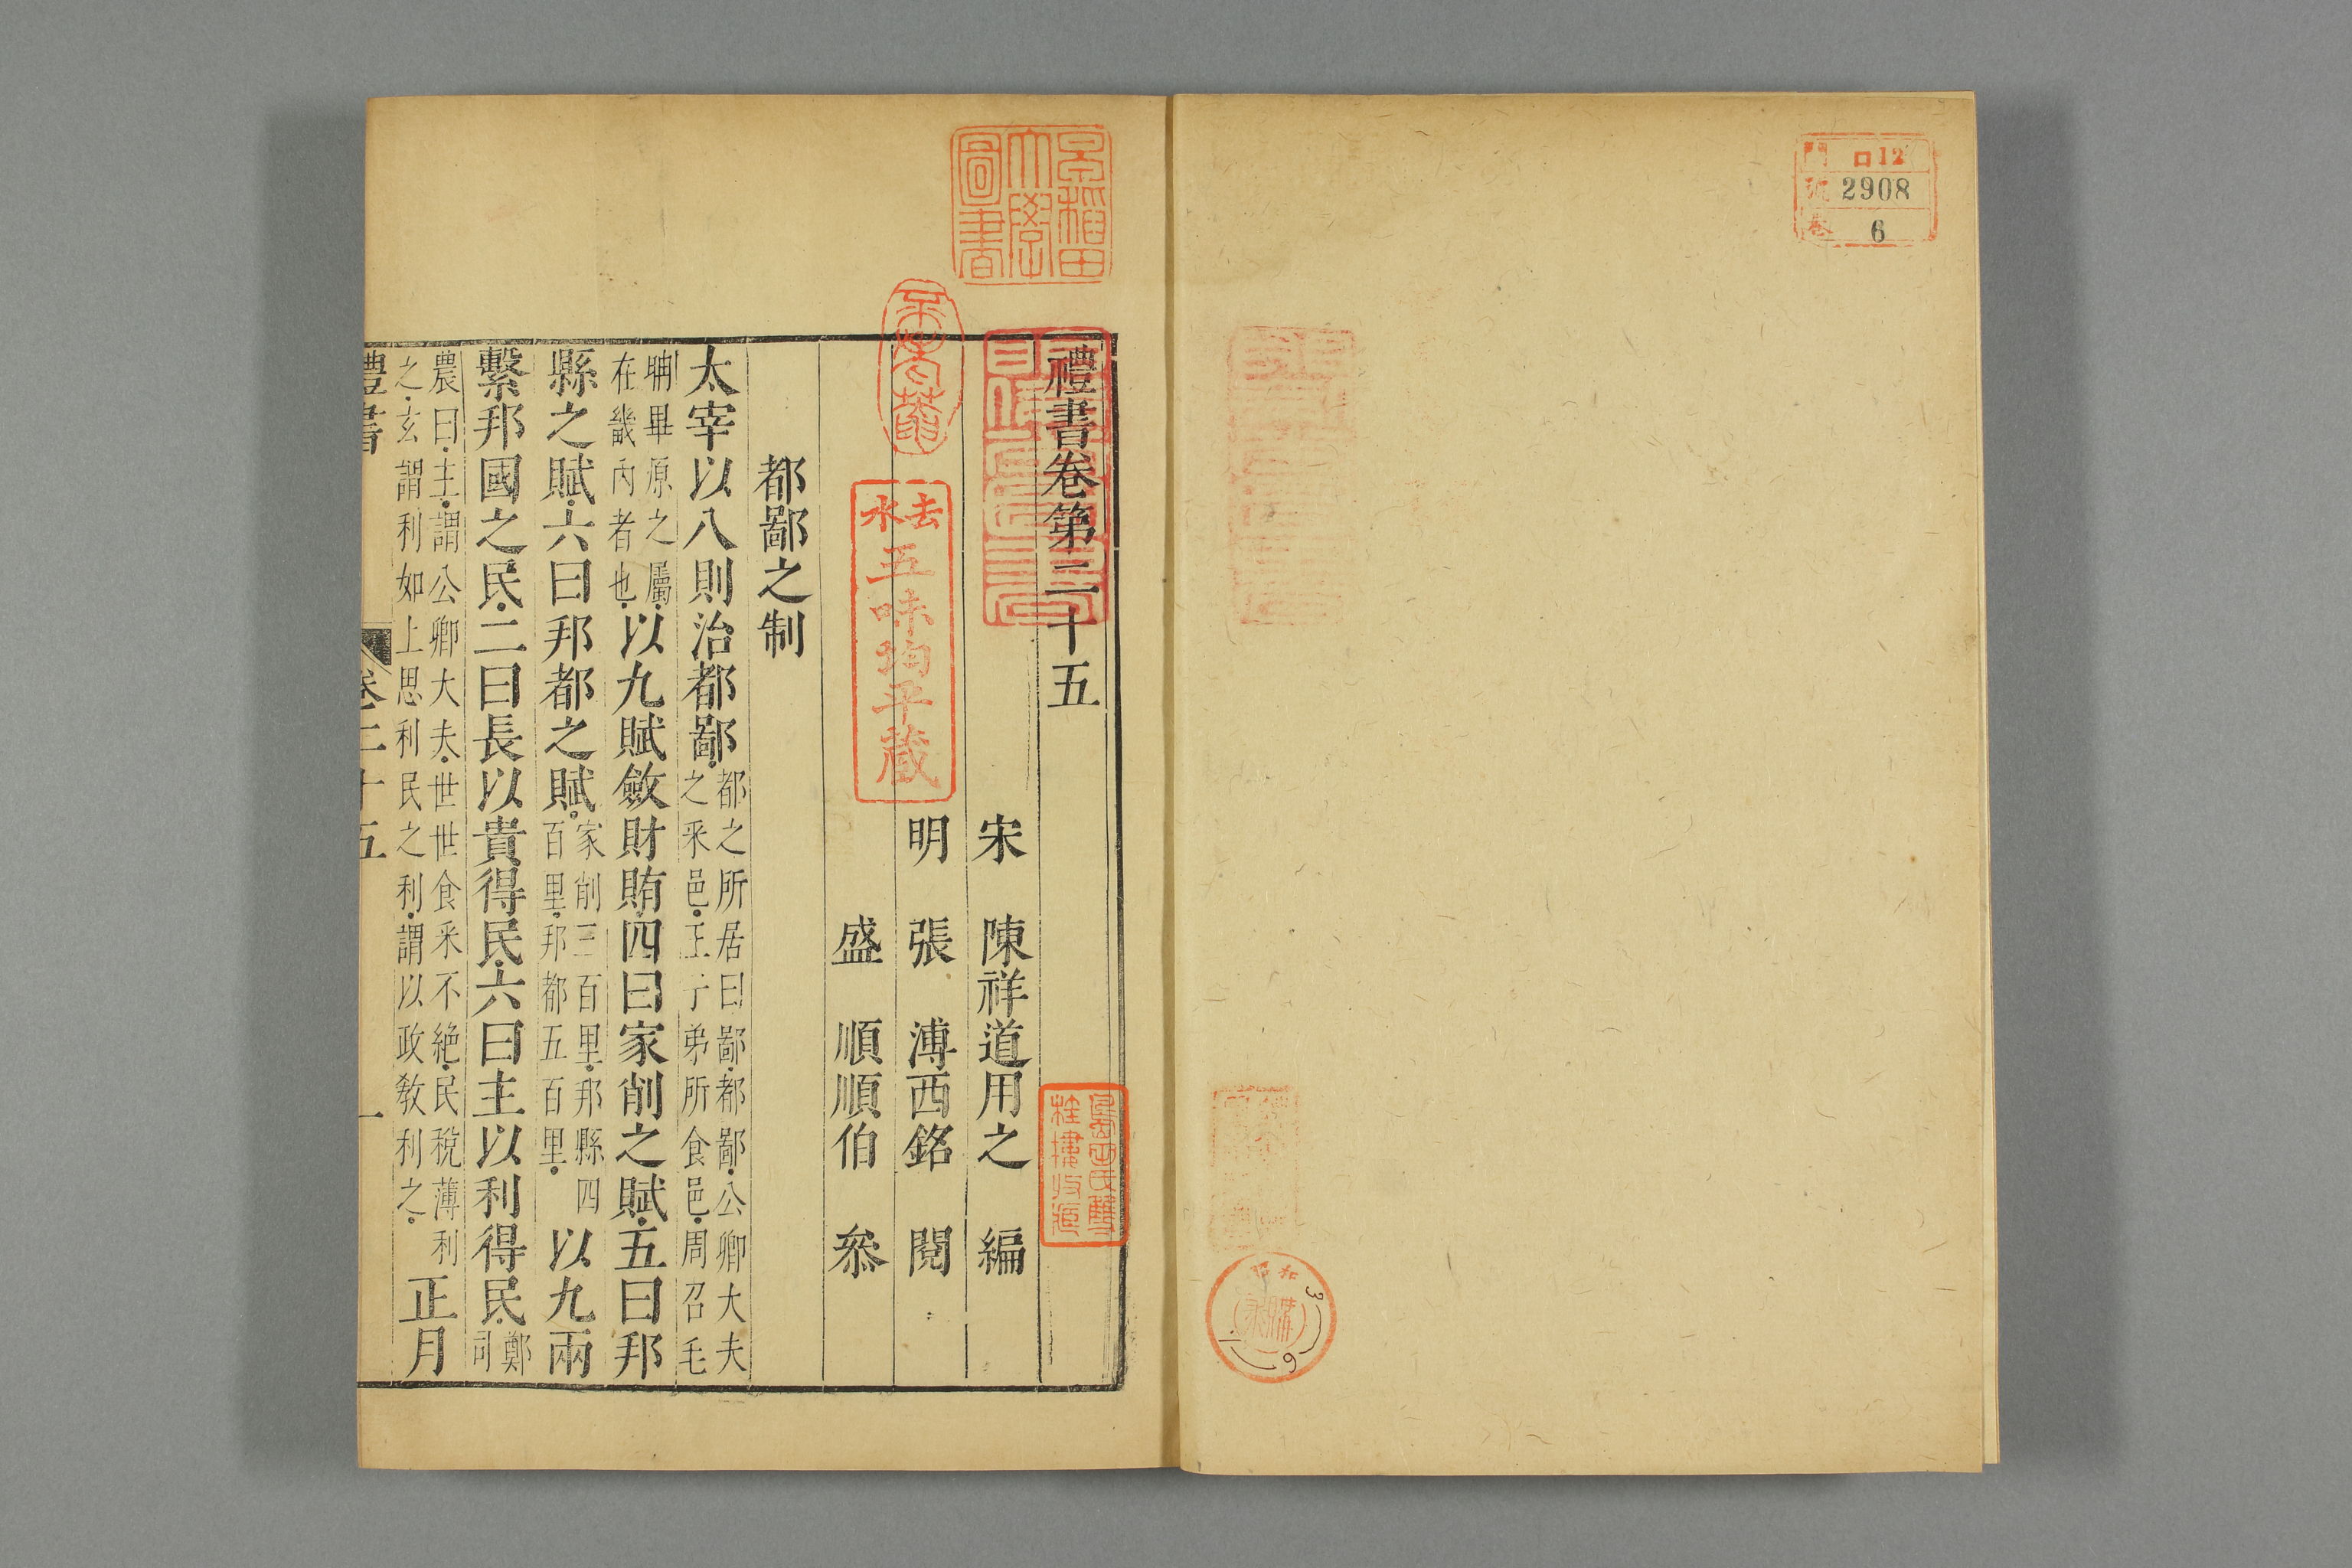 門 ロ12
號 2908
卷 6
昭和
購求
3
6
1
早稻田
大學
圖書
禮書卷第二十五
宋 陳祥道用之 編
明 張溥西銘 閱
盛順順伯 叅
去水
五味均平蔵
都鄙之制
太宰以八則治都鄙都之所居曰鄙都鄙公卿大夫
之采邑王子弟所食邑周召毛
聃畢原之屬
在畿內者也以九賦斂財賄四曰家削之賦五曰邦
縣之賦六曰邦都之賦家削三百里邦縣四
百里邦都五百里以九兩
繫邦國之民二曰長以貴得民六曰主以利得民鄭
司
農曰主謂公卿大夫世世食采不絶民稅薄利
之玄謂利如上思利民之利謂以政敎利之正月
禮書 卷二十五 一